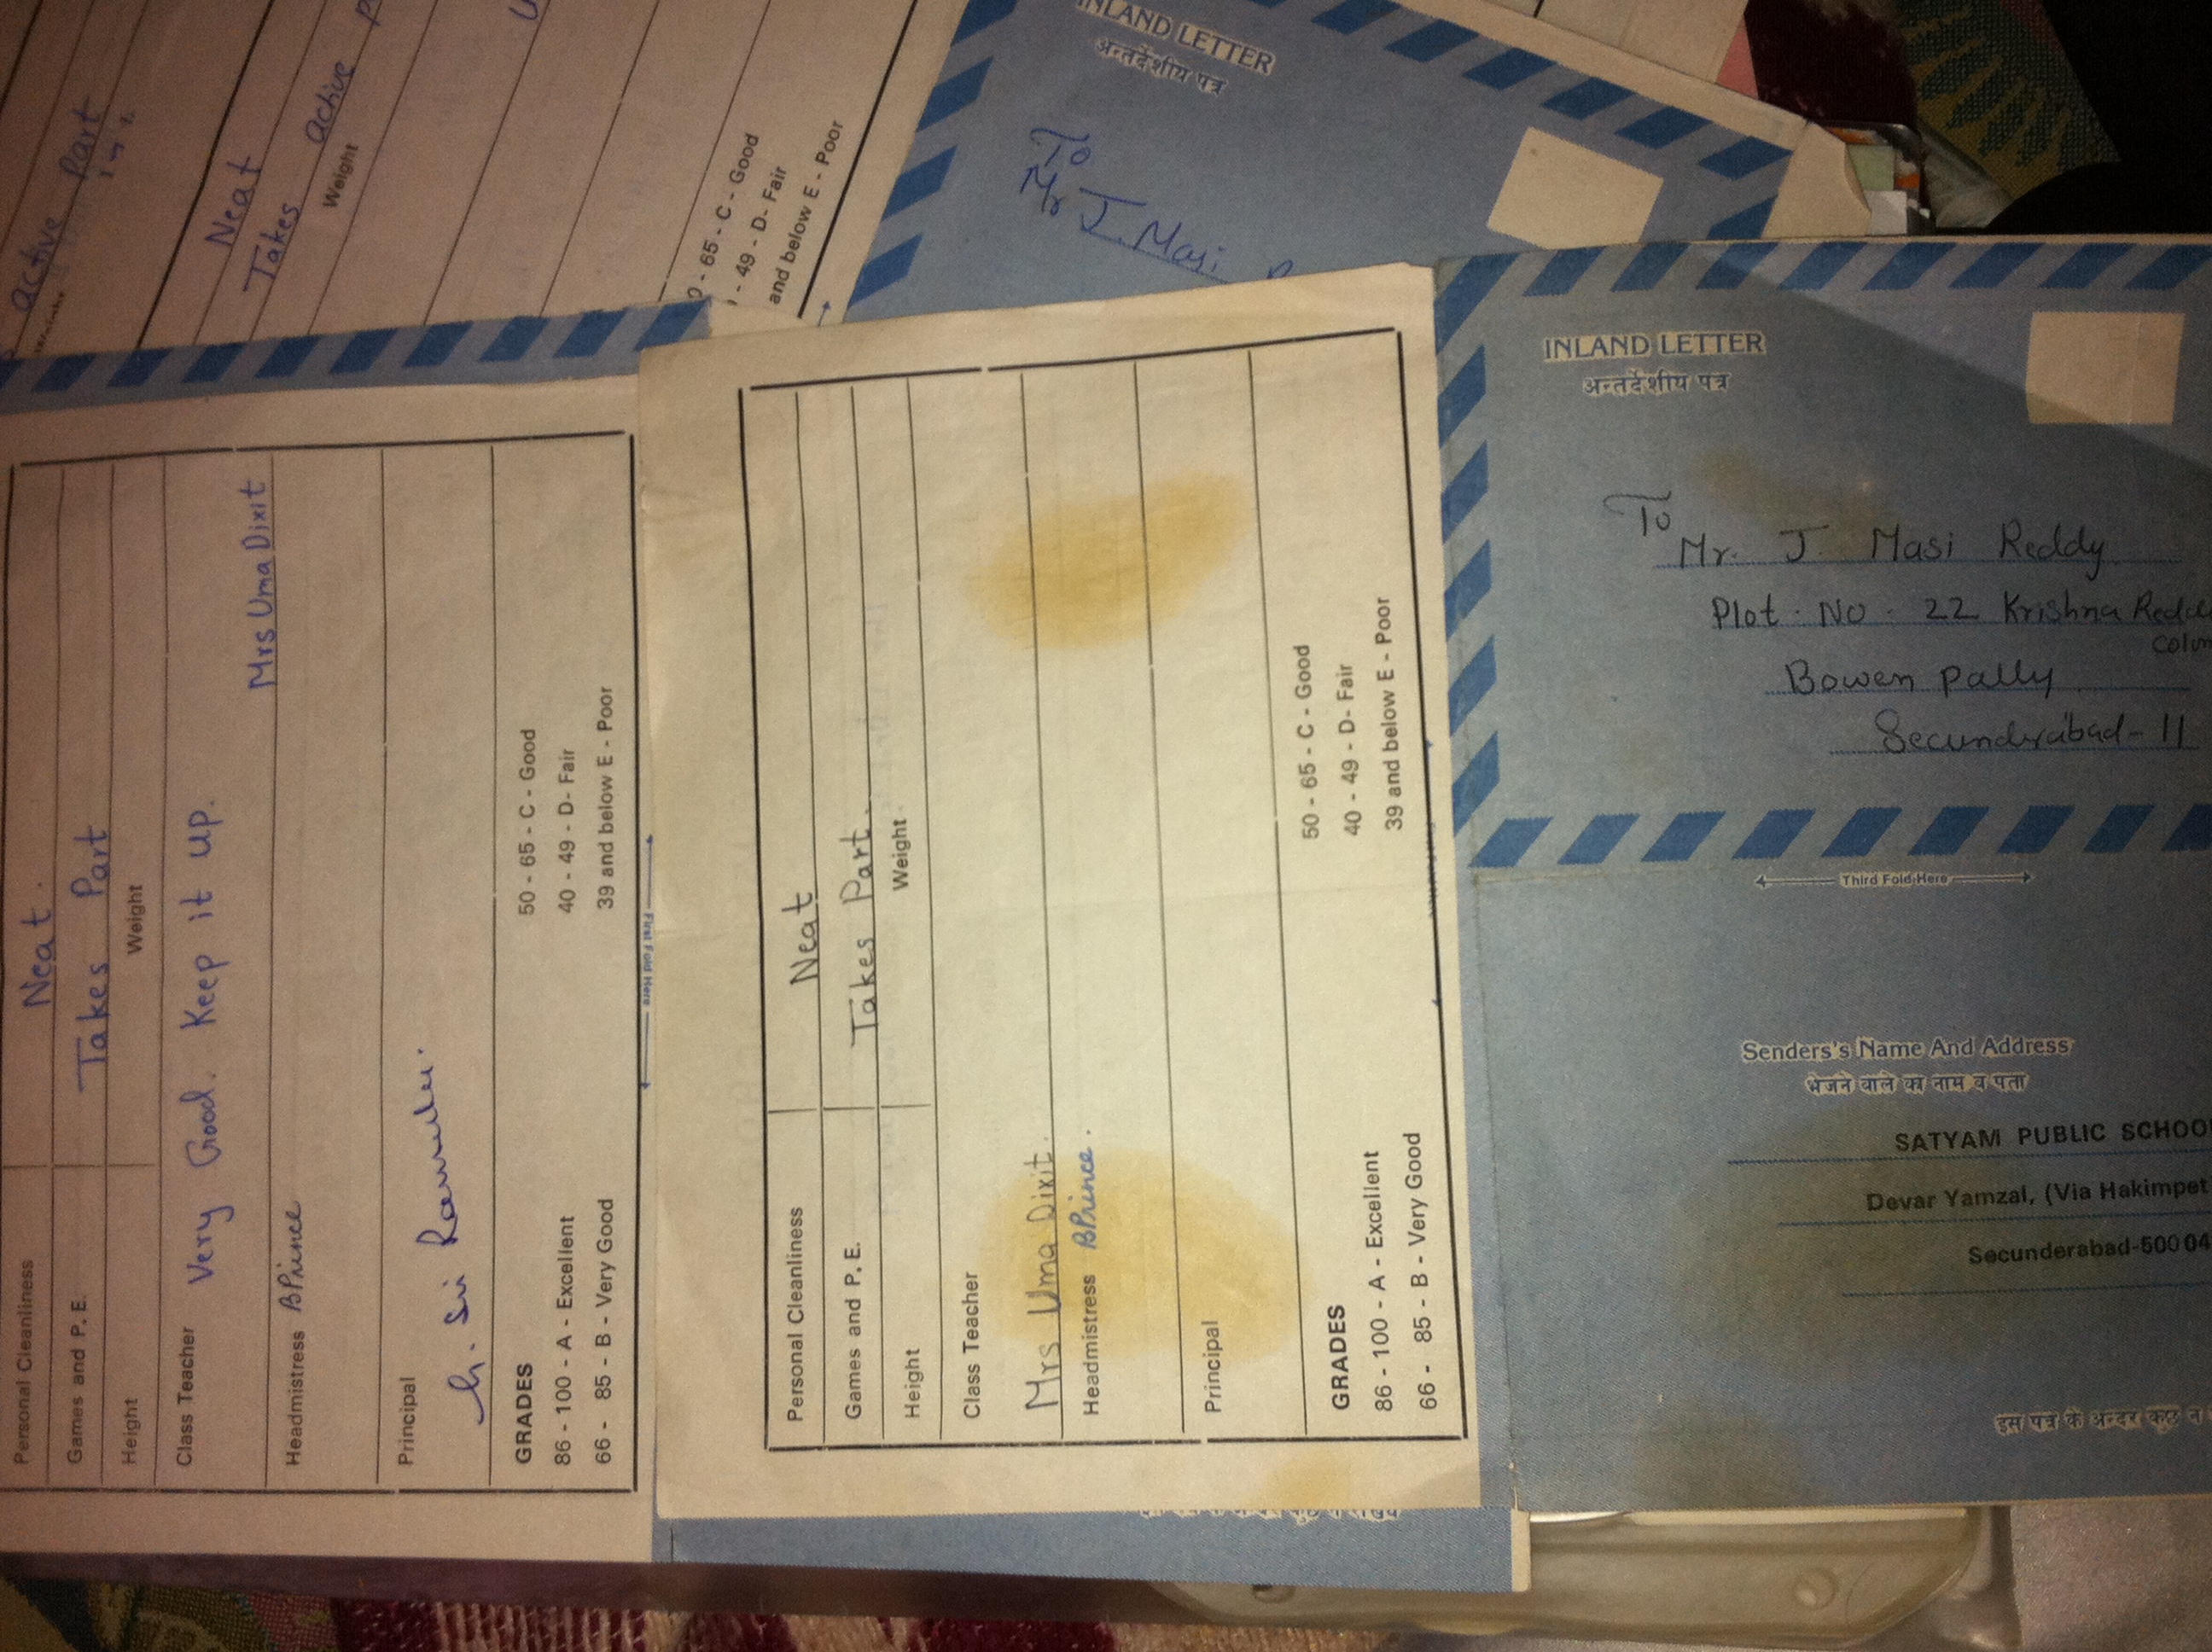 Personal Cleanliness Neat.
Games and P. E. Takes Part
Height Weight
Class Teacher Very Good. Keep it up.
Mrs Uma Dixit
Headmistress BPrince
Principal
G. Sri Ramulu.
GRADES
86 - 100 - A - Excellent
66 - 85 - B - Very Good
50 - 65 - C - Good
40 - 49 - D- Fair
39 and below E - Poor
First Fold Here
active part
Neat
Takes active
Weight
- 65 - C - Good
- 49 - D- Fair
and below E - Poor
Personal Cleanliness Neat
Games and P. E. Takes Part.
Height Weight
Class Teacher
Mrs Uma Dixit.
Headmistress BPrince.
Principal
GRADES
86 - 100 - A - Excellent
66 - 85 - B - Very Good
50 - 65 - C - Good
40 - 49 - D- Fair
39 and below E - Poor
To
Mr J. Masi
INLAND LETTER
अन्तर्देशीय पत्र
INLAND LETTER
अन्तर्देशीय पत्र
To
Mr. J. Masi Reddy
Plot. No. 22 Krishna Reddy
Colon
Bowen Pally
Secundrabad-11
Third Fold Here
Senders's Name And Address
भेजने वाले का नाम व पता
SATYAM PUBLIC SCHOO
Devar Yamzal, (Via Hakimpet
Secunderabad-50004
इस पत्र के अन्दर कुछ न